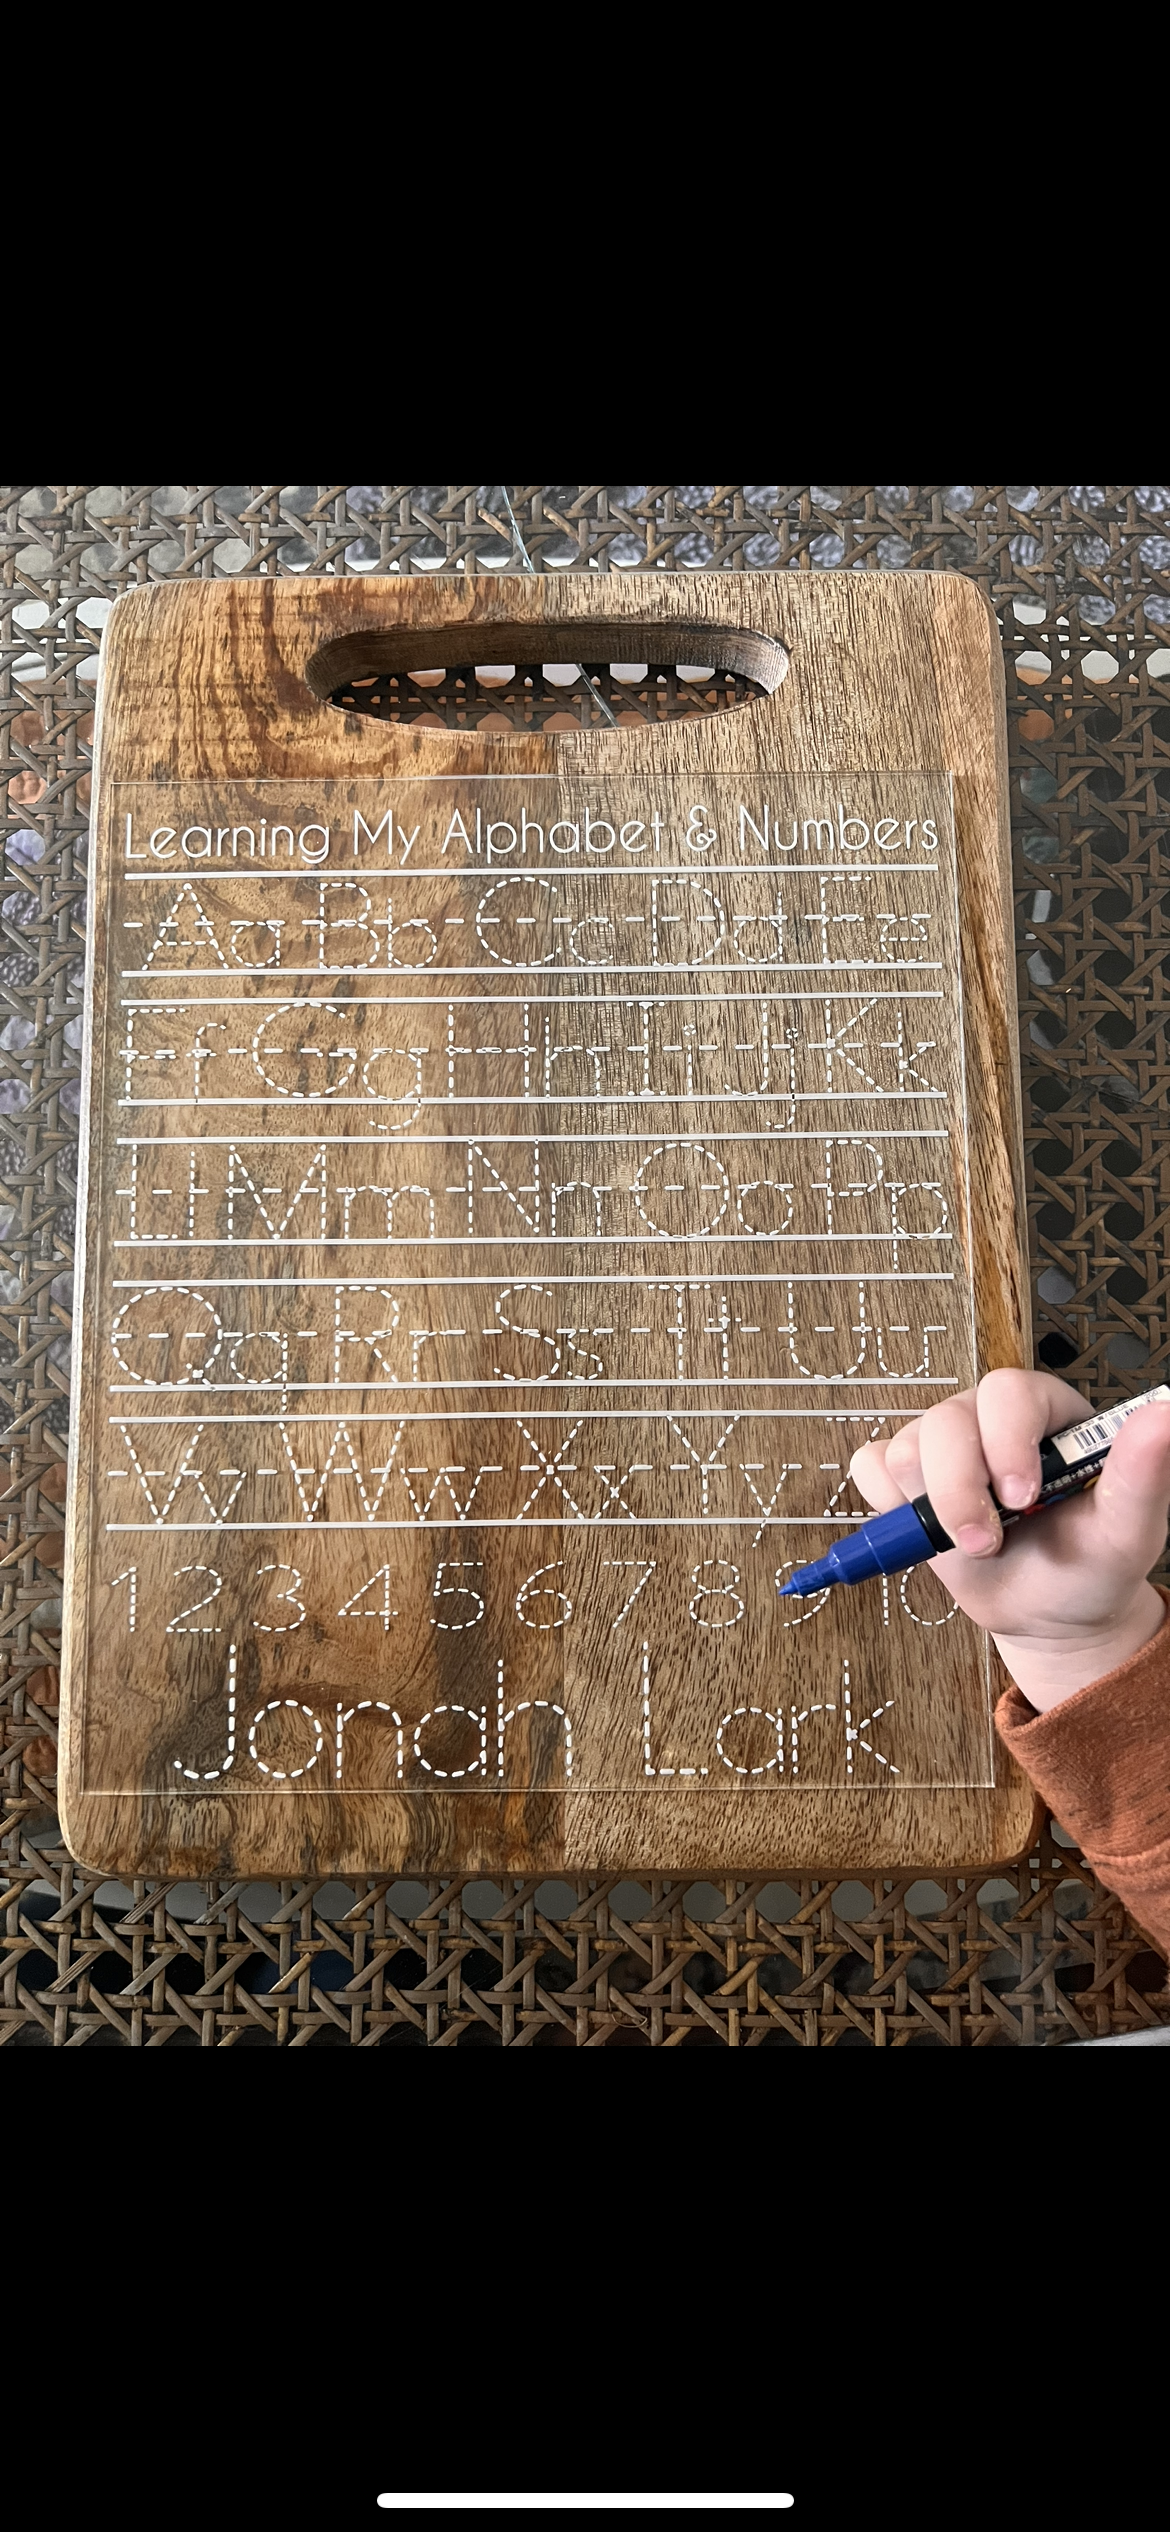 Learning My Alphabet & Numbers
Aa Bb Cc Dd Ee
Ff Gg Hh Ii Jj Kk
Ll Mm Nn Oo Pp
Qq Rr Ss Tt Uu
Vv Ww Xx Yy Z
1 2 3 4 5 6 7 8 9 10
Jonah Lark